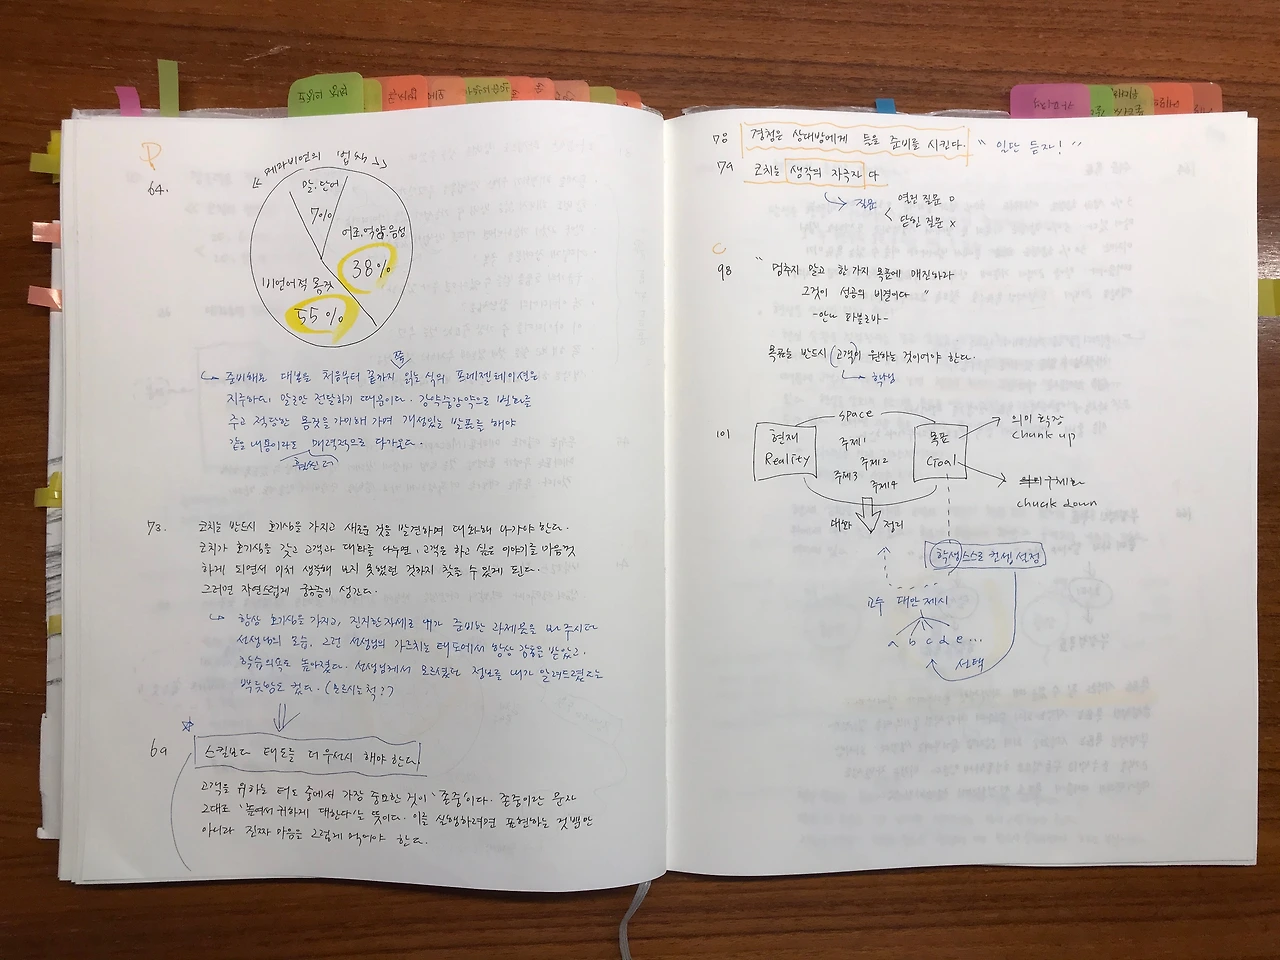 P
64.
《메라비언의 법칙》
말, 단어
7%
어조, 억양, 음성
38%
비언어적 몸짓
55%
쭉
준비해온 대본을 처음부터 끝까지 읽는 식의 프레젠테이션은
지루하다. 말로만 전달하기 때문이다. 강약중강약으로 변화를
주고 적당한 몸짓을 가미해 가며 개성있는 발표를 해야
같은 내용이라도 매력적으로 다가온다.
훨씬 더
73.
코치는 반드시 호기심을 가지고 새로운 것을 발견하며 대화해 나가야 한다.
코치가 호기심을 갖고 고객과 대화를 나누면, 고객은 하고 싶은 이야기를 마음껏
하게 되면서 미처 생각해 보지 못했던 것까지 찾을 수 있게 된다.
그러면 자연스럽게 궁금증이 생긴다.
항상 호기심을 가지고, 진지한 자세로 내가 준비한 과제물을 봐 주시던
선생님의 모습. 그런 선생님의 가르치는 태도에서 항상 감동을 받았고,
학습의욕도 높아졌다. 선생님께서 모르셨던 정보를 내가 알려드렸을 때는
뿌듯함도 컸다. (모르시는 척?)
69
스킬보다 태도를 더 우선시 해야 한다.
고객을 위하는 태도 중에서 가장 중요한 것이 '존중'이다. 존중이란 문자
그대로 '높여서 귀하게 대한다'는 뜻이다. 이를 실행하려면 표현하는 것뿐만
아니라 진짜 마음을 그렇게 먹어야 한다.
70 경청은 상대방에게 들을 준비를 시킨다. "일단 듣자!"
79 코치는 생각의 자극자다
질문
열린 질문 O
닫힌 질문 X
C
98 "멈추지 말고 한 가지 목표에 매진하라
그것이 성공의 비결이다"
-안나 파블로바-
목표는 반드시 (고객)이 원하는 것이어야 한다.
학생
101
space
현재
Reality
주제1
주제2
주제3
주제4
목표
Goal
의미 확장
chunk up
구체화
chuck down
대화
정리
학생 스스로 컨셉 설정
교수 대안 제시
a b c d e ...
선택